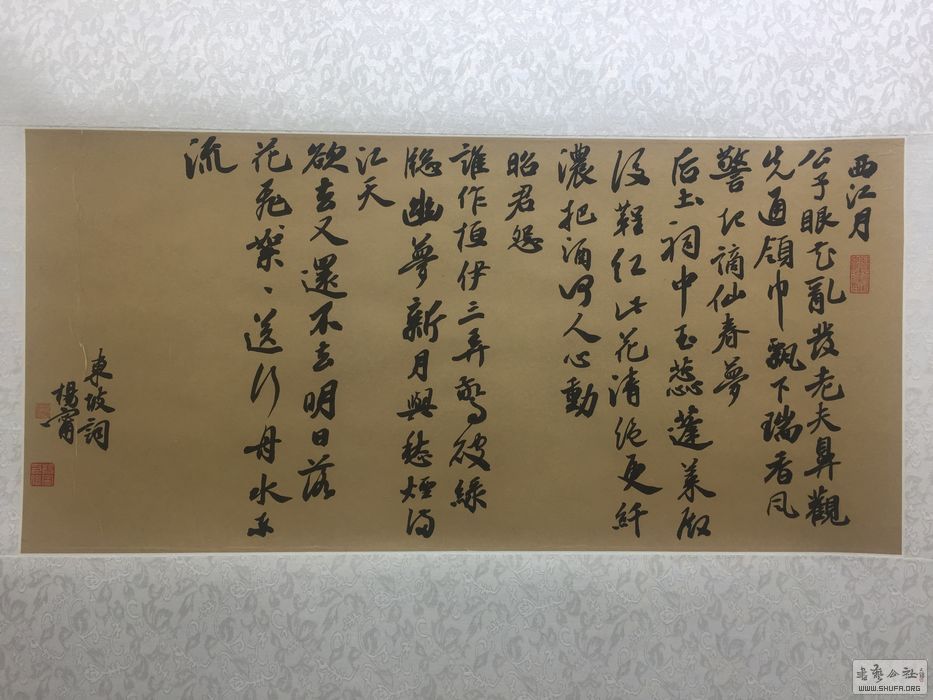 西江月
公子眼花亂發老夫鼻觀
先通領巾飄下瑞香風
驚起謫仙春夢
后土祠中玉蕊蓬萊殿
後鞓紅此花清絕更纖
濃把酒何人心動
昭君怨
誰作桓伊三弄驚破綠
窗幽夢新月與愁煙滿
江天
欲去又還不去明日落
花飛絮飛絮送行舟水東
流
東坡詞
楊甯
書藝公社
WWW.SHUFA.ORG